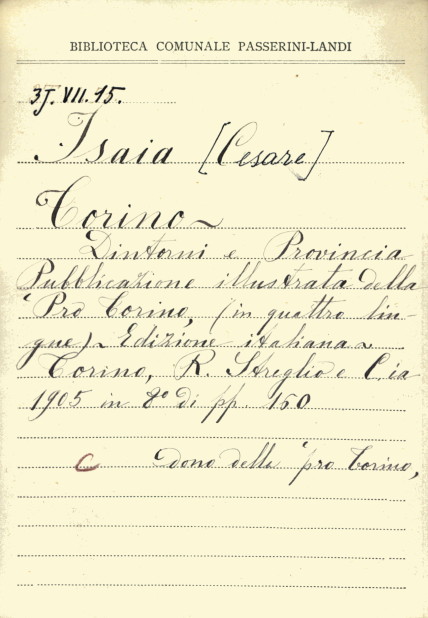 BIBLIOTECA COMUNALE PASSERINI-LANDI
3J. VII. 15.
Isaia [Cesare]
Torino ~
Dintorni e Provincia
Pubblicazione illustrata della
"Pro Torino, (in quattro lin-
gue) ~ Edizione italiana ~
Torino, R. Streglio e C.ia
1905 in 8° di pp. 160
C dono della "pro Torino,